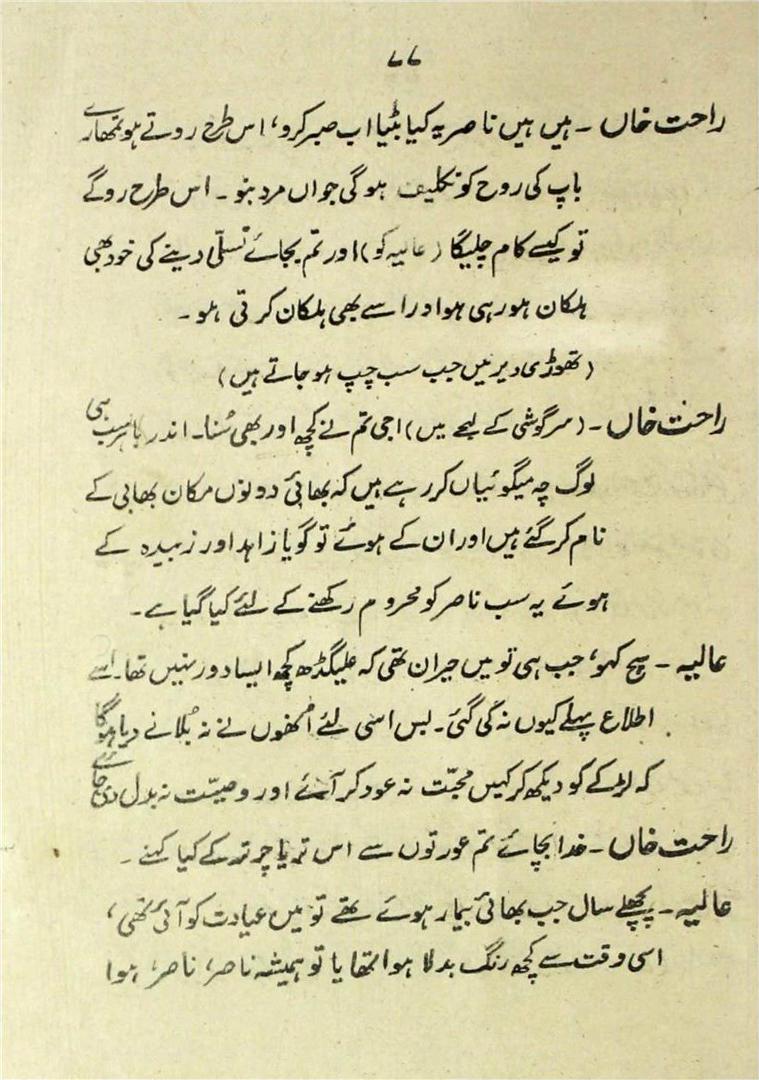 ۷۷
راحت خاں ۔ ہیں ہیں ناصر یہ کیا بٹیا اب صبر کرو، اس طرح روتے ہو تمھارے
باپ کی روح کو تکلیف ہوگی جواں مرد بنو ۔ اس طرح روگے
تو کیسے کام چلیگا (عالیہ کو) اور تم بجائے تسلّی دینے کی خود بھی
ہلکان ہو رہی ہو اور اسے بھی ہلکان کرتی ہو ۔
(تھوڑی دیر میں جب سب چپ ہو جاتے ہیں)
راحت خاں ۔ (سرگوشی کے لہجے میں) اجی تم نے کچھ اور بھی سُنا ۔ اندر باہر سب ہی
لوگ چہ میگوئیاں کر رہے ہیں کہ بھائی دونوں مکان بھابی کے
نام کر گئے ہیں اور ان کے ہوئے تو گویا زاہد اور زبیدہ کے
ہوئے یہ سب ناصر کو محروم رکھنے کے لئے کیا گیا ہے ۔
عالیہ ۔ سچ کہو، جب ہی تو میں حیران تھی کہ علیگڈھ کچھ ایسا دور نہیں تھا ۔ اسے
اطلاع پہلے کیوں نہ کی گئی ۔ بس اسی لئے اُنھوں نے نہ بُلانے دیا ہوگا
کہ لڑکے کو دیکھ کر کہیں محبّت نہ عود کر آئے اور وصیّت نہ بدل دی جائے
راحت خاں ۔ خدا بچائے تم عورتوں سے اس تریا چرتر کے کیا کہنے ۔
عالیہ ۔ پچھلے سال جب بھائی بیمار ہوئے تھے تو میں عیادت کو آئی تھی،
اسی وقت سے کچھ رنگ بدلا ہوا تھا یا تو ہمیشہ ناصر، ناصر، ہوا